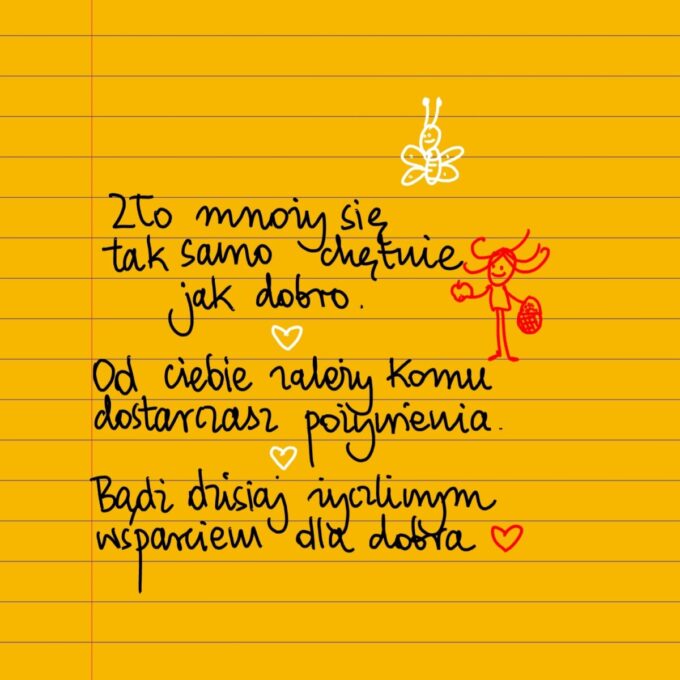 Zło mnoży się
tak samo chętnie
jak dobro.
Od ciebie zależy komu
dostarczasz pożywienia.
Bądź dzisiaj życzliwym
wsparciem dla dobra